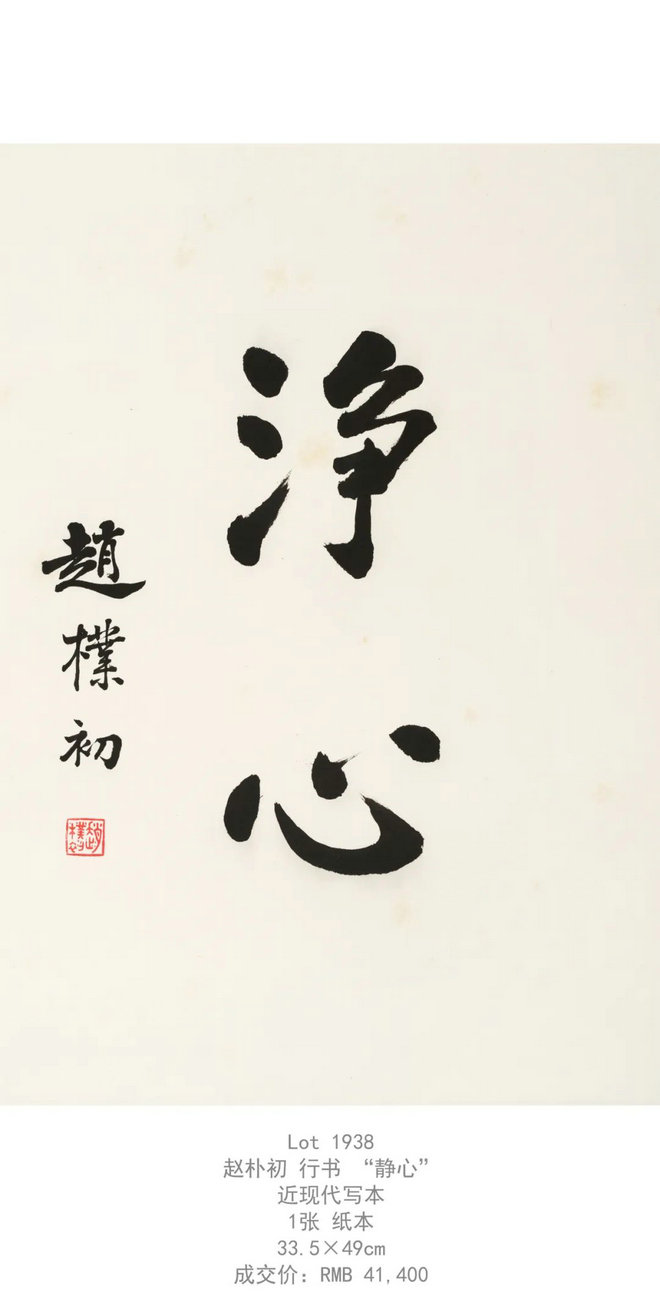 淨心
趙樸初
Lot 1938
赵朴初 行书 “静心”
近现代写本
1张 纸本
33.5×49cm
成交价: RMB 41,400